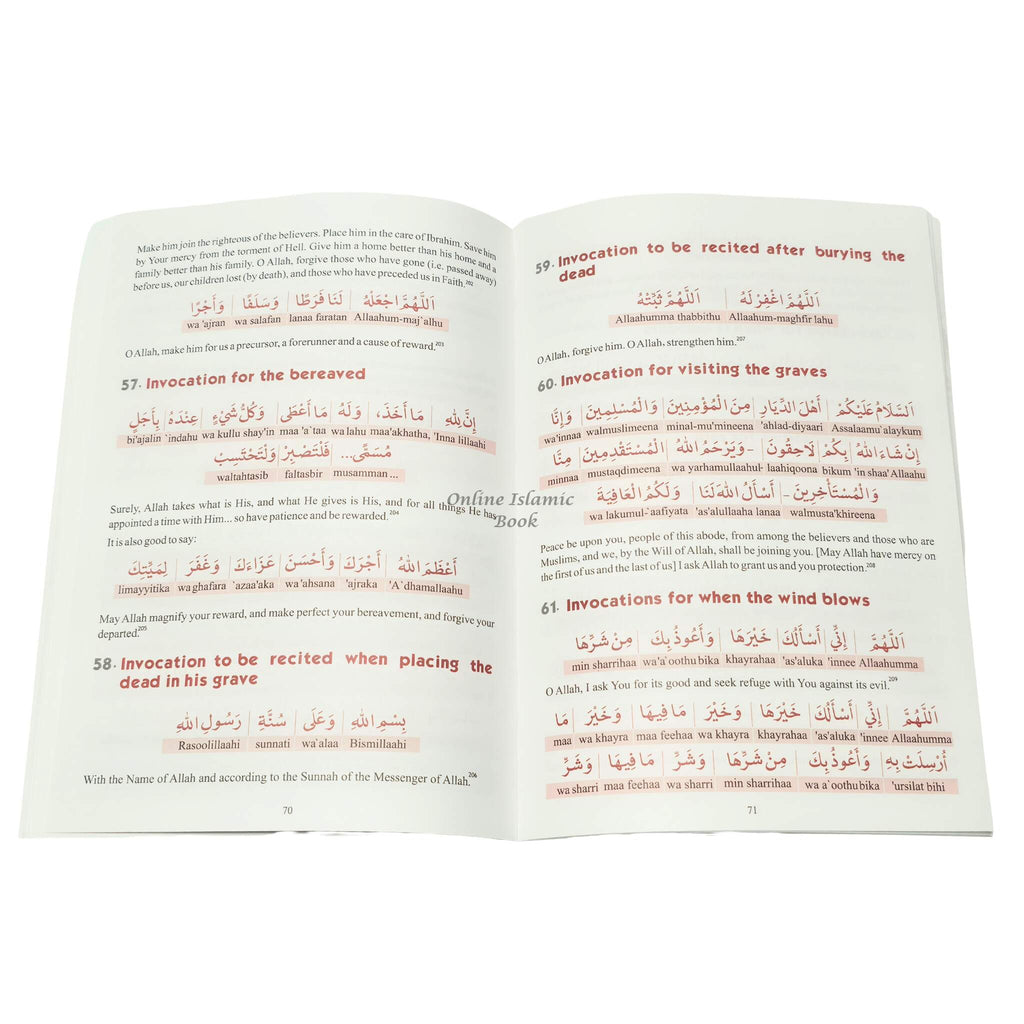 Make him join the righteous of the believers. Place him in the care of Ibrahim. Save him
by Your mercy from the torment of Hell. Give him a home better than his home and a
family better than his family. O Allah, forgive those who have gone (i.e. passed away)
before us, our children lost (by death), and those who have preceded us in Faith.202
اَللَّهُمَّ اجْعَلْهُ لَنَا فَرَطًا وَسَلَفًا وَأَجْرًا
wa 'ajran wa salafan lanaa faratan Allaahum-maj`alhu
O Allah, make him for us a precursor, a forerunner and a cause of reward.203
57. Invocation for the bereaved
إِنَّ لِلّٰهِ مَا أَخَذَ، وَلَهُ مَا أَعْطَى وَكُلُّ شَيْءٍ عِنْدَهُ بِأَجَلٍ
bi'ajalin `indahu wa kullu shay'in maa 'a`taa wa lahu maa'akhatha, 'Inna lillaahi
مُسَمًّى... فَلْتَصْبِرْ وَلْتَحْتَسِبْ
waltahtasib faltasbir musamman ...
Surely, Allah takes what is His, and what He gives is His, and for all things He has
appointed a time with Him... so have patience and be rewarded.204
It is also good to say:
أَعْظَمَ اللهُ أَجْرَكَ وَأَحْسَنَ عَزَاءَكَ وَغَفَرَ لِمَيِّتِكَ
limayyitika wa ghafara `azaa'aka wa 'ahsana 'ajraka 'A`dhamallaahu
May Allah magnify your reward, and make perfect your bereavement, and forgive your
departed.205
58. Invocation to be recited when placing the
dead in his grave
بِسْمِ اللهِ وَعَلَى سُنَّةِ رَسُولِ اللهِ
Rasoolillaahi sunnati wa`alaa Bismillaahi
With the Name of Allah and according to the Sunnah of the Messenger of Allah.206
70
59. Invocation to be recited after burying the
dead
اَللَّهُمَّ اغْفِرْ لَهُ اَللَّهُمَّ ثَبِّتْهُ
Allaahumma thabbithu Allaahum-maghfir lahu
O Allah, forgive him. O Allah, strengthen him.207
60. Invocation for visiting the graves
اَلسَّلَامُ عَلَيْكُمْ أَهْلَ الدِّيَارِ مِنَ الْمُؤْمِنِينَ وَالْمُسْلِمِينَ وَإِنَّا
wa'innaa walmuslimeena minal-mu'mineena 'ahlad-diyaari Assalaamu`alaykum
إِنْ شَاءَ اللهُ بِكُمْ لَاحِقُونَ - وَيَرْحَمُ اللهُ الْمُسْتَقْدِمِينَ مِنَّا
minnaa mustaqdimeena wa yarhamullaahul- laahiqoona bikum 'in shaa'Allaahu
وَالْمُسْتَأْخِرِينَ - أَسْأَلُ اللهَ لَنَا وَلَكُمُ الْعَافِيَةَ
wa lakumul-`aafiyata 'as'alullaaha lanaa walmusta'khireena
Peace be upon you, people of this abode, from among the believers and those who are
Muslims, and we, by the Will of Allah, shall be joining you. [May Allah have mercy on
the first of us and the last of us] I ask Allah to grant us and you protection.208
61. Invocations for when the wind blows
اَللَّهُمَّ إِنِّي أَسْأَلُكَ خَيْرَهَا وَأَعُوذُ بِكَ مِنْ شَرِّهَا
min sharrihaa wa'a`oothu bika khayrahaa 'as'aluka 'innee Allaahumma
O Allah, I ask You for its good and seek refuge with You against its evil.209
اَللَّهُمَّ إِنِّي أَسْأَلُكَ خَيْرَهَا وَخَيْرَ مَا فِيهَا وَخَيْرَ مَا
maa wa khayra maa feehaa wa khayra khayrahaa 'as'aluka 'innee Allaahumma
أُرْسِلَتْ بِهِ وَأَعُوذُ بِكَ مِنْ شَرِّهَا وَشَرِّ مَا فِيهَا وَشَرِّ
wa sharri maa feehaa wa sharri min sharrihaa wa a`oothu bika 'ursilat bihi
71
Online Islamic
Book